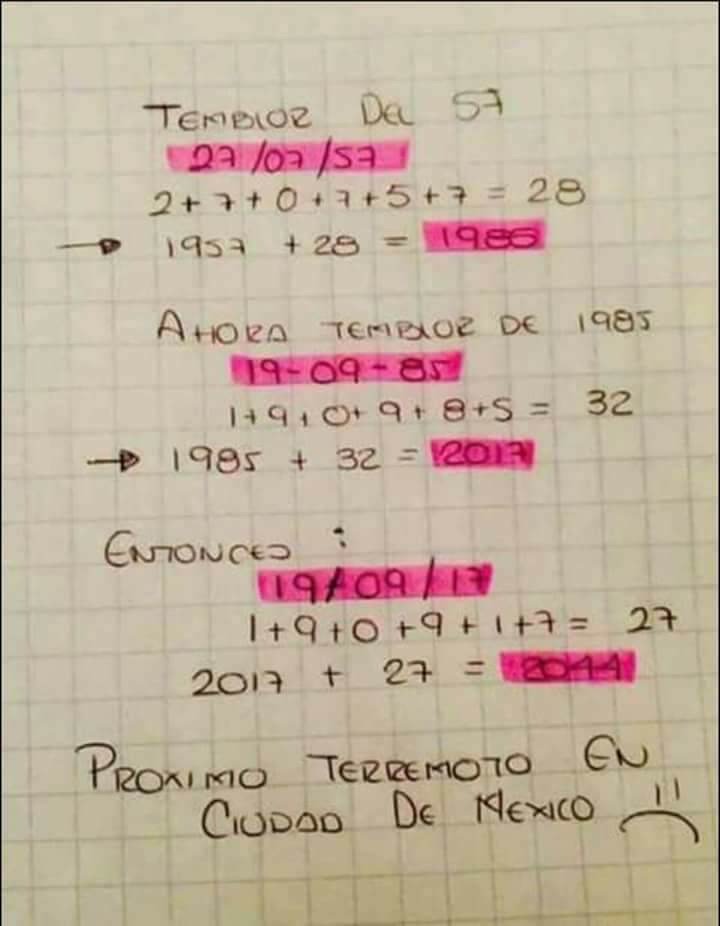 TEMBLOR DEL 57
27/07/57
2+7+0+7+5+7 = 28
→ 1957 + 28 = 1985
AHORA TEMBLOR DE 1985
19-09-85
1+9+0+9+8+5 = 32
→ 1985 + 32 = 2017
ENTONCES :
19/09/17
1+9+0+9+1+7 = 27
2017 + 27 = 2044
PROXIMO TERREMOTO EN
CIUDAD DE MEXICO